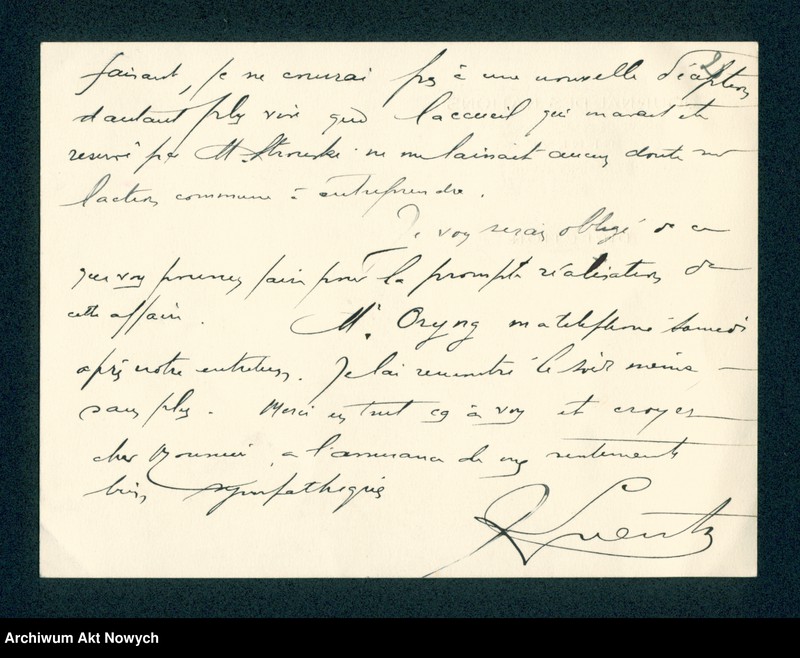 28
faisant, je ne courrai pas à une nouvelle déception
d'autant plus vive que l'accueil qui m'avait été
reservé par M. Strowski ne me laissait aucun doute sur
l'action commune à entreprendre.
Je vous serais obligé de ce
que vous pourrez faire pour la prompte réalisation de
cette affaire. Mr. Oryng m'a téléphoné samedi
après notre entretien. Je l'ai rencontré le soir même
sans plus. Merci en tout cas à vous et croyez
cher Monsieur, a l'assurance de mes sentiments
bien sympathiques
Archiwum Akt Nowych